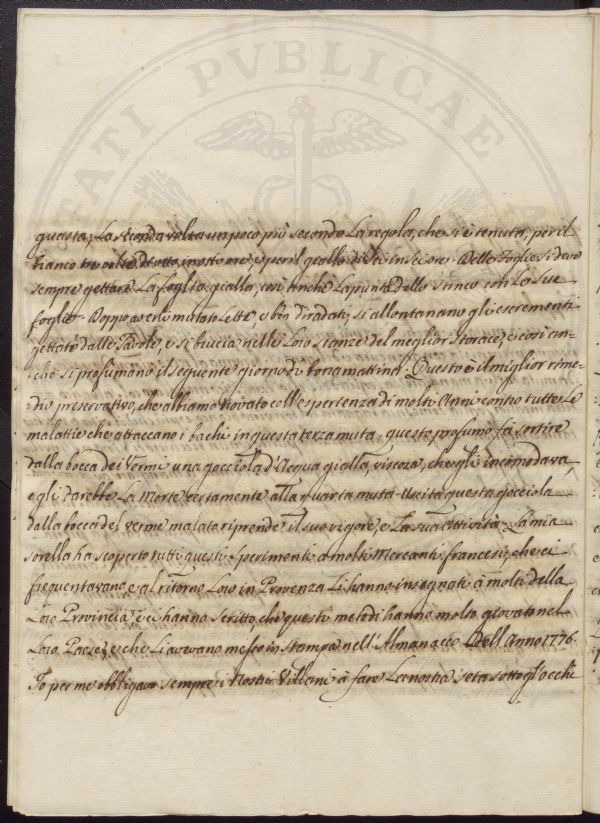 EATI PVBLICAE
guasta; La seconda volta un poco più secondo La regola, che si è tenuta, per il
bianco tre o di otto, in otto ore, e per il giallo di in sei ore. Delle Foglie si deve
sempre gettare La foglia gialla, così anche La punta dello stinco con Lo sue
foglie. Doppo averli mutato Letto, e ben diradati, si allontanano gli escrementi
gettato dalle Tavole, e si buccia nelle Loro stanze del meglior storace, e così an-
che si profumano il sequente giorno di bona mattina. Questo è il miglior rime-
dio preservativo, che abbiamo trovato coll'espertenza di molti Anni contro tutte Le
malattie che attaccano i bachi in questa terza muta. questo profumo fà sortire
dalla bocca dei Vermi una gocciola d'Acqua gialla, viscoza, che gli incomodava,
e gli darebbe La Morte certamente alla quarta muta. Uscita questa gocciola
dalla bocca del verme malata riprende il suo vigore, e La sua attività. La mia
sorella ha scoperto tutti questi sperimenti a molti Mercanti francesi, che ci
frequentavano, e al ritorno Loro in Provenza Li hanno insegnati à molti della
Loro Provincia, e ci hanno scritto, che questi metodi hanno molto giovato nel
Loro Paese, e che Li avevano messo in stampa nell'Almanacco Dell Anno 1776.
Io per me obbligavo sempre i Nostri Villani à fare La nostra seta sotto gl'occhi